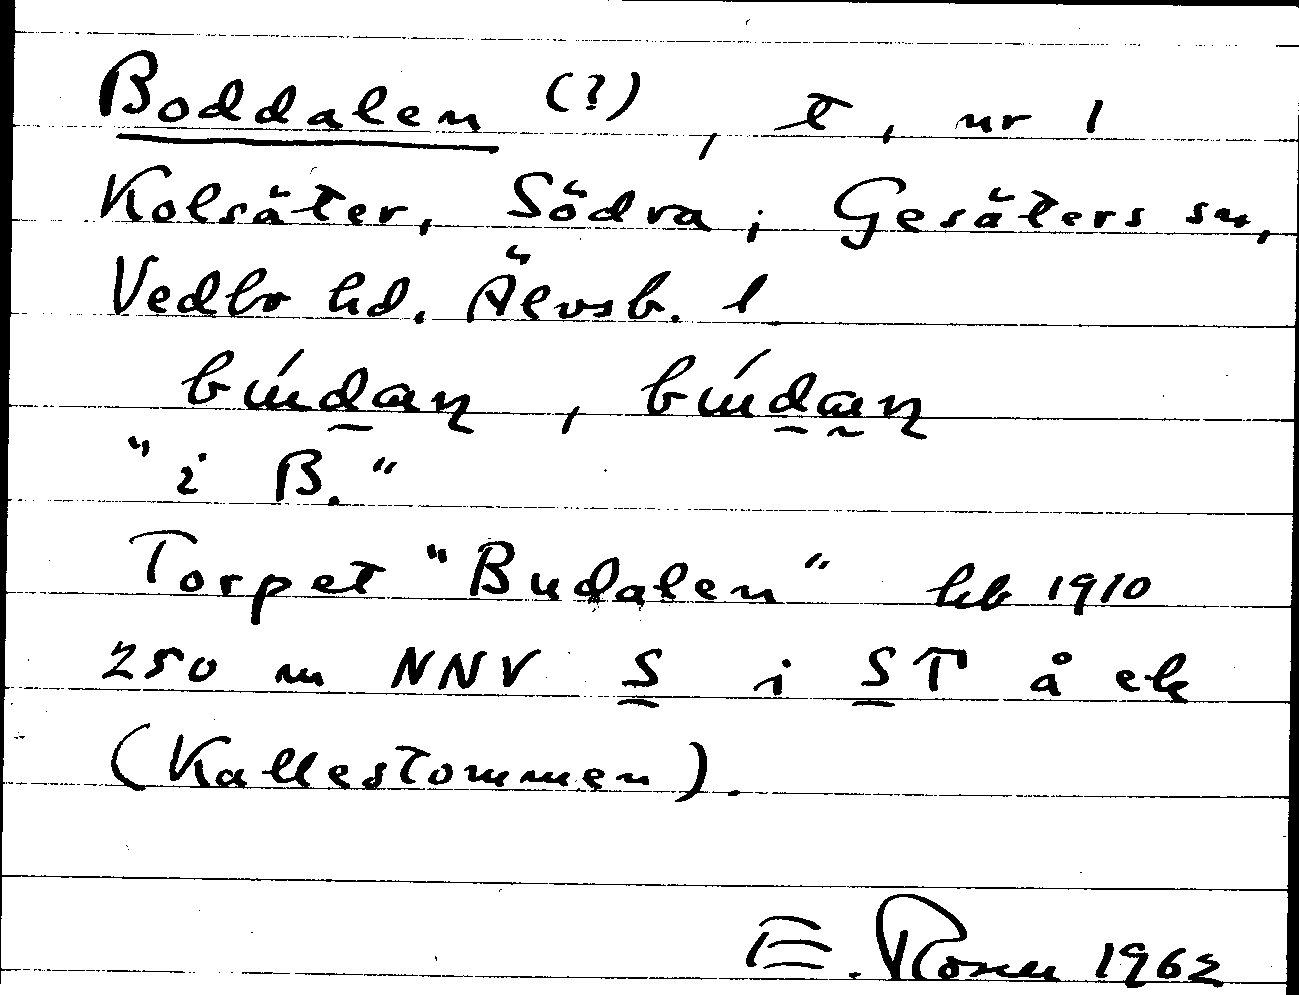 Boddalen (?), t, nr 1
Kolsäter, Södra; Gesäters sn,
Vedbo hd. Älvsb. l
"i B."
Torpet "Budalen" hb 1910
250 m NNV S i ST å ek
(Kallestommen).
E. Rosen 1962